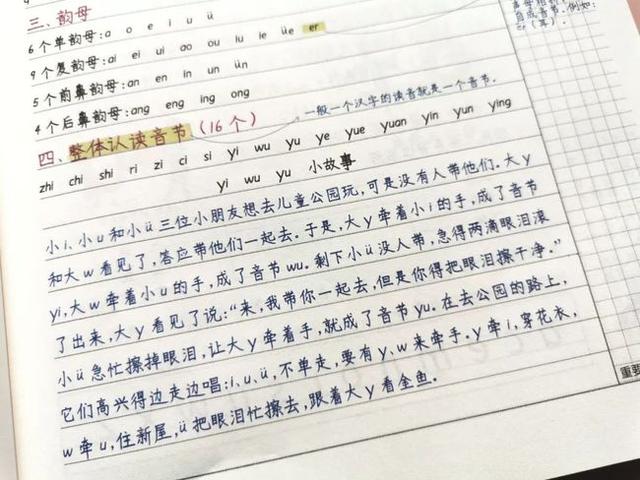 三、韵母
6个单韵母:a o e i u ü
9个复韵母:ai ei ui ao ou iu ie üe er
5个前鼻韵母:an en in un ün
4个后鼻韵母:ang eng ing ong
一般一个汉字的读音就是一个音节.
四、整体认读音节(16个)
zhi chi shi ri zi ci si yi wu yu ye yue yuan yin yun ying
yi wu yu 小故事
小i、小u和小ü三位小朋友想去儿童公园玩,可是没有人带他们.大y
和大w看见了,答应带他们一起去.于是,大y牵着小i的手,成了音节
yi,大w牵着小u的手,成了音节wu.剩下小ü没人带,急得两滴眼泪滚
了出来,大y看见了说:“来,我带你一起去,但是你得把眼泪擦干净.”
小ü急忙擦掉眼泪,让大y牵着手,就成了音节yu.在去公园的路上,
它们高兴得边走边唱:i、u、ü,不单走,要有y、w来牵手.y牵i,穿花衣,
w牵u,住新屋,ü把眼泪忙擦去,跟着大y看金鱼.
自成音节.例如:
er(耳).
重要